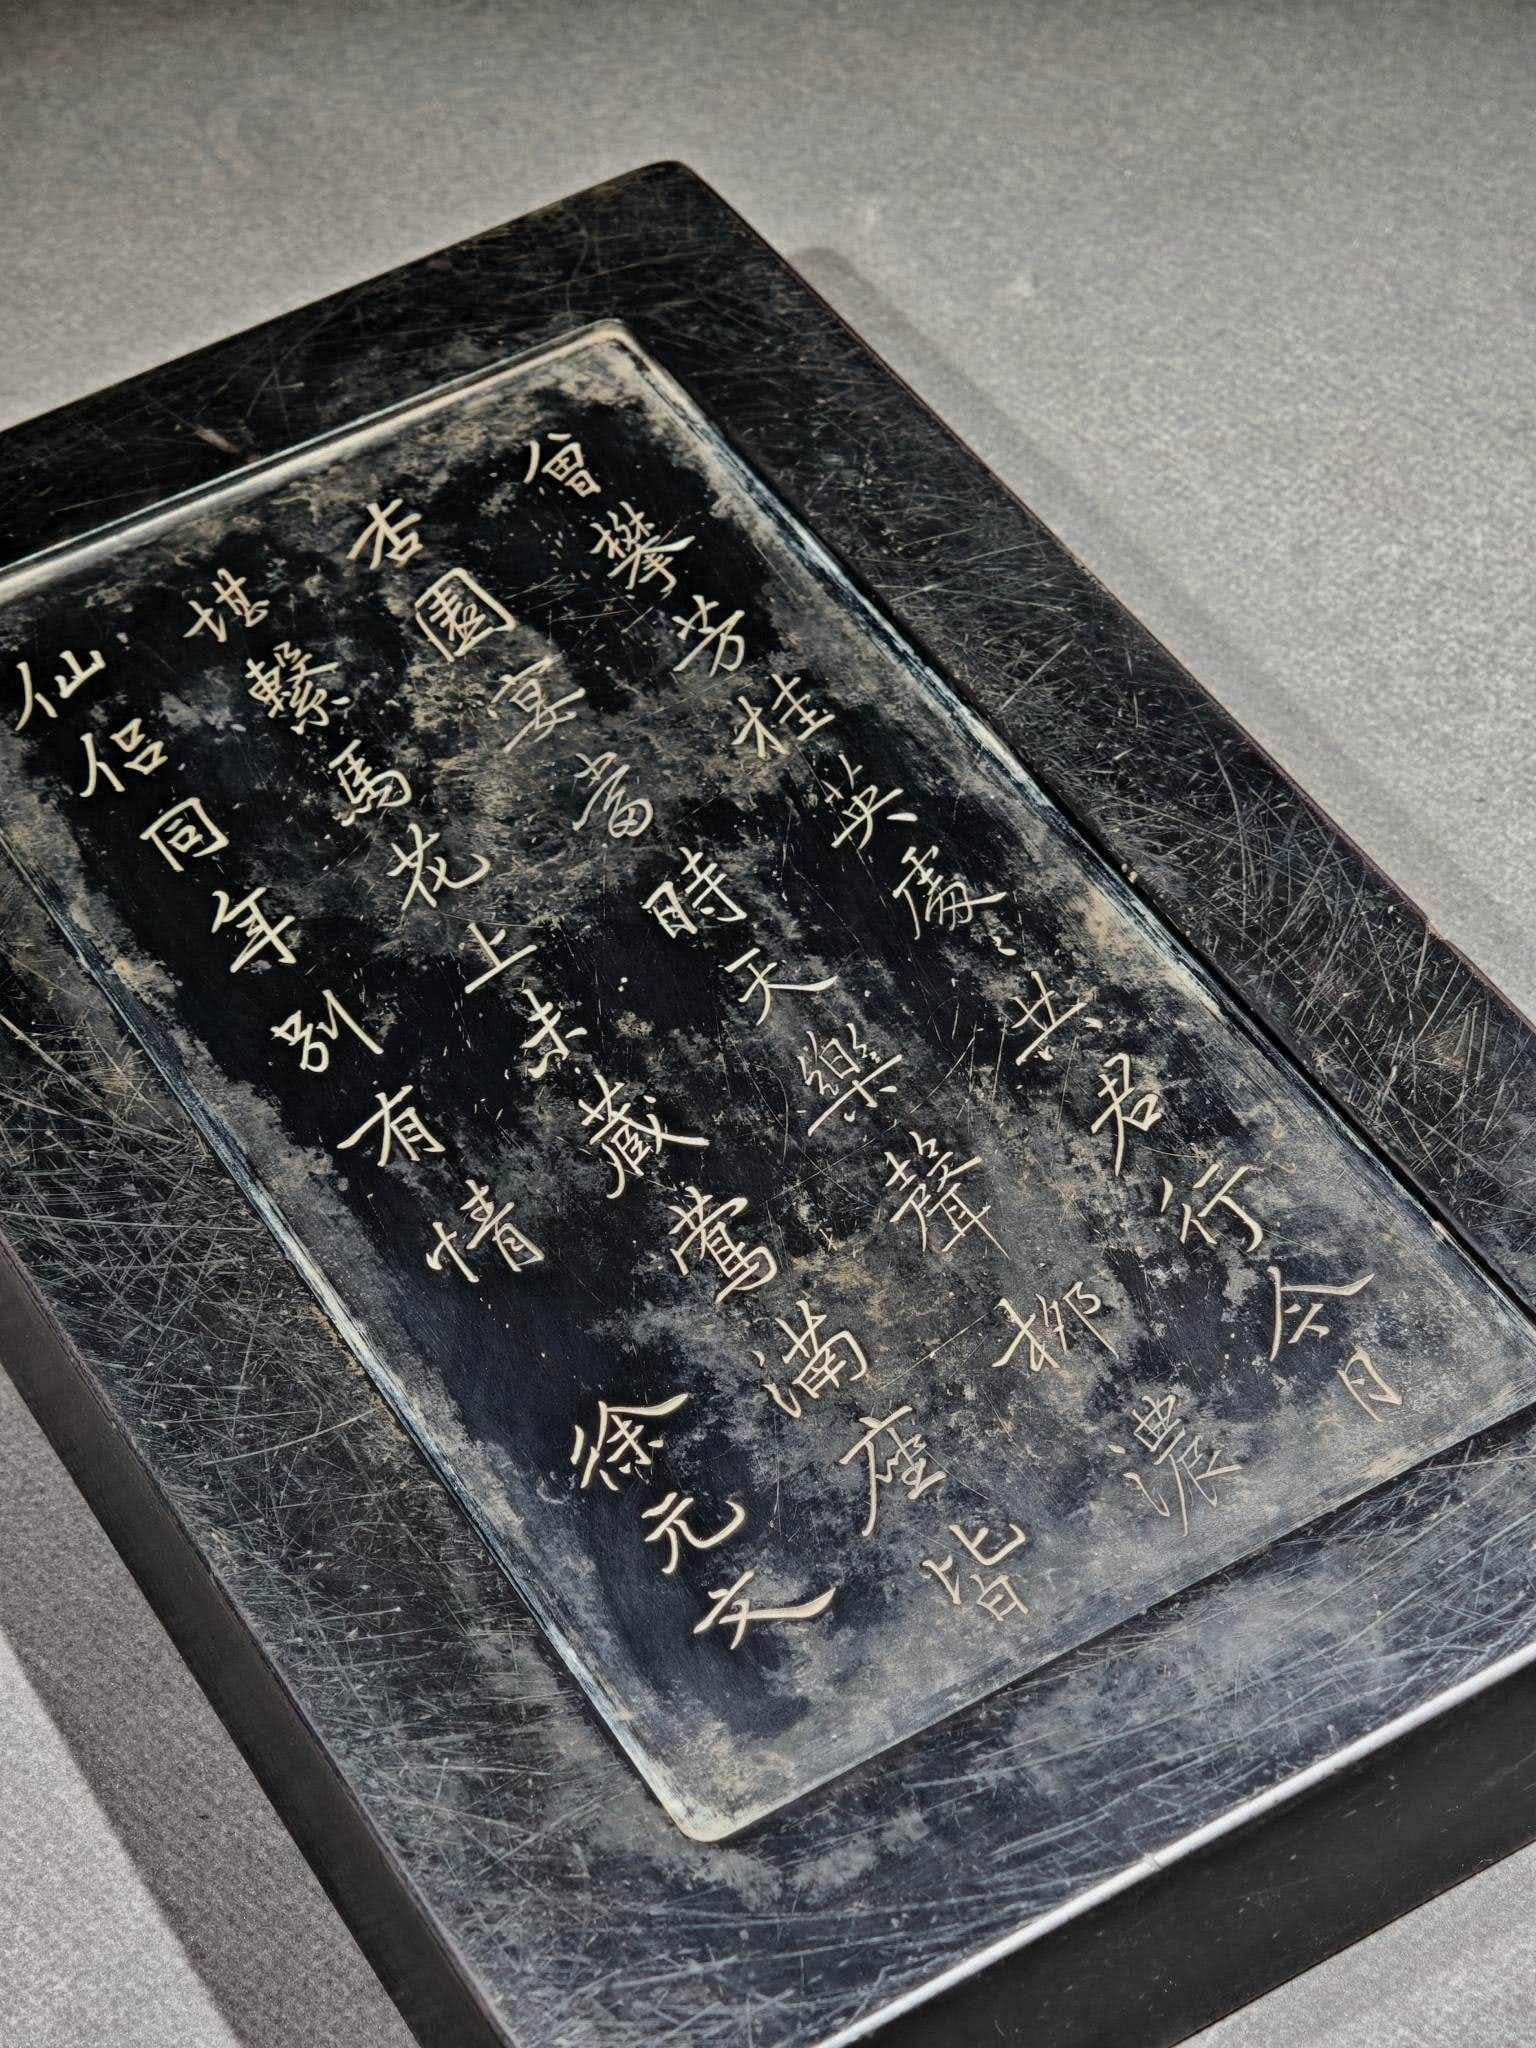 曾攀芳桂英處〻共君行今日
杏園宴當時天樂聲柳濃
堪繫馬花上未藏鶯滿座皆
仙侶同年別有情
徐元文